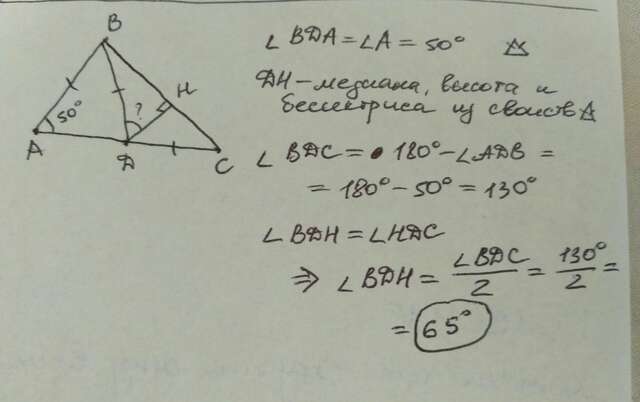 B
H
50°
?
A
D
C
∠BDA = ∠A = 50° △
DH - медиана, высота и
бессектриса из свойств △
∠BDC = 180° - ∠ADB =
= 180° - 50° = 130°
∠BDH = ∠HDC
⇒ ∠BDH = ∠BDC/2 = 130°/2 =
= 65°